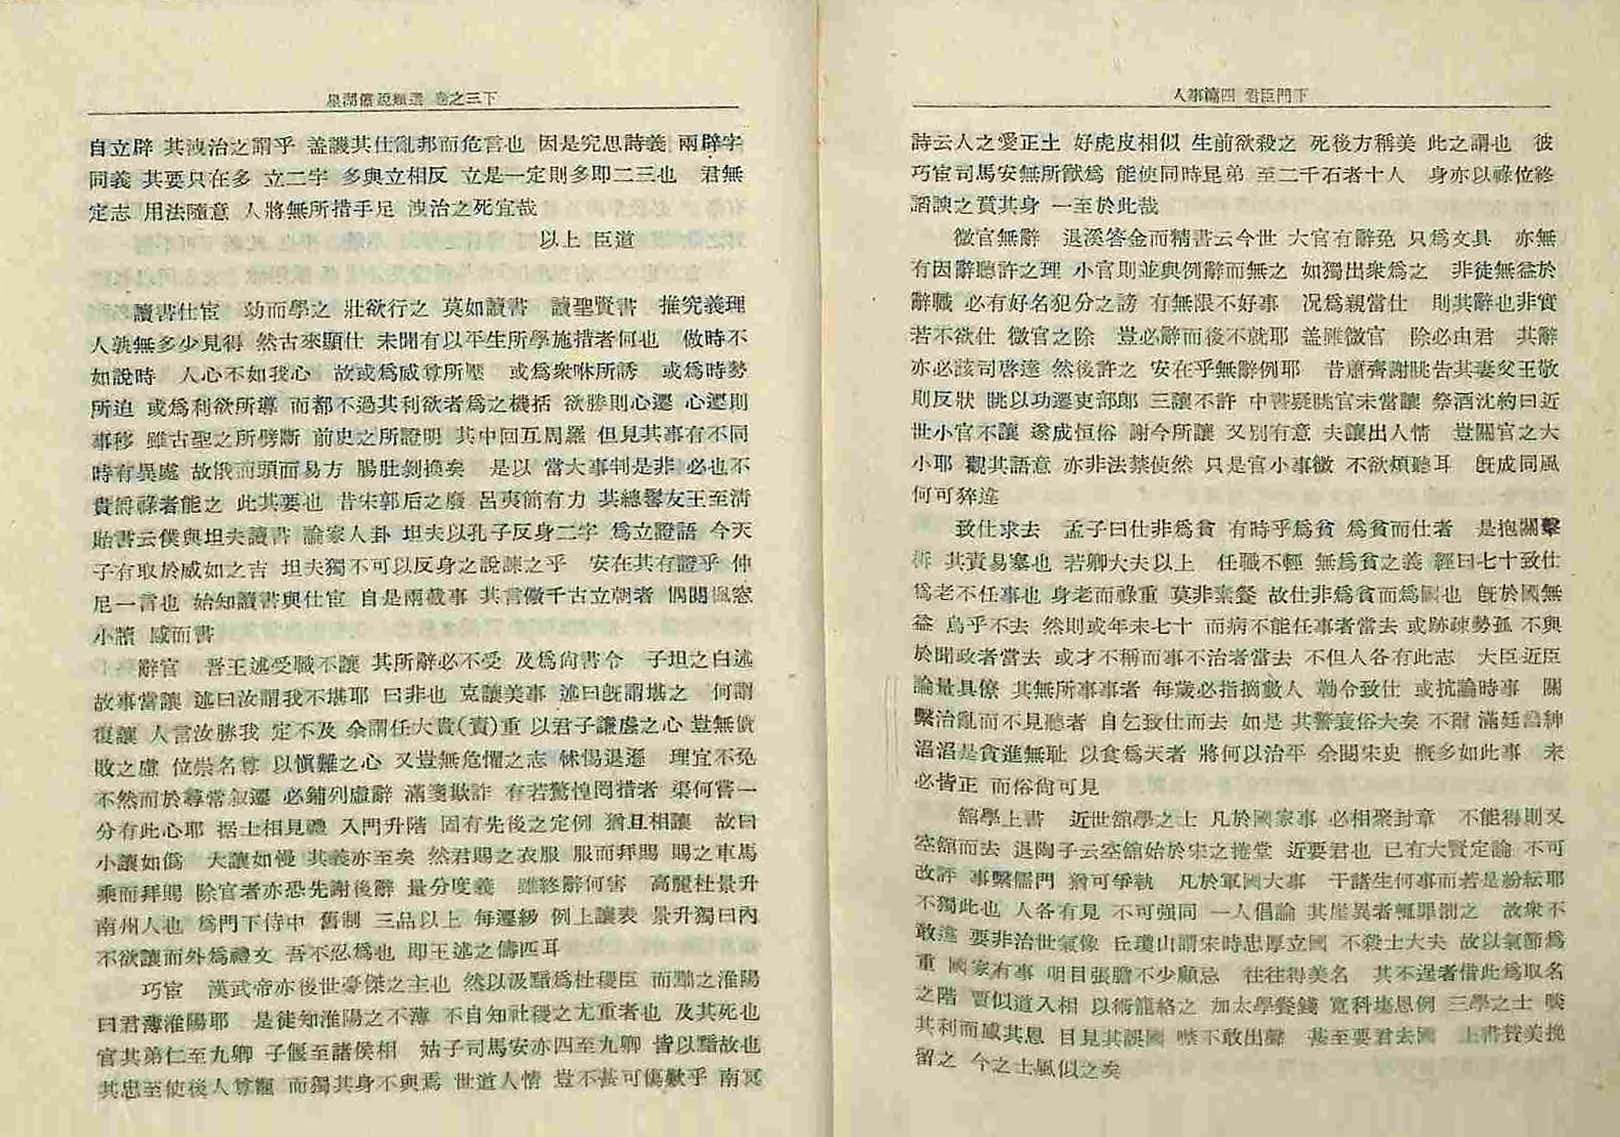 星湖僿說類選 卷之三下
自立辟 其洩治之謂乎 盖譏其仕亂邦而危言也 因是究思詩義 兩辟字
同義 其要只在多 立二字 多與立相反 立是一定則多即二三也 君無
定志 用法隨意 人將無所措手足 洩治之死宜哉
以上 臣道
讀書仕宦 幼而學之 壯欲行之 莫如讀書 讀聖賢書 推究義理
人孰無多少見得 然古來顯仕 未聞有以平生所學施措者何也 做時不
如說時 人心不如我心 故或爲威尊所壓 或爲衆咻所誘 或爲時勢
所迫 或爲利欲所導 而都不過其利欲者爲之機括 欲勝則心遷 心遷則
事移 雖古聖之所劈斷 前史之所證明 其中回互周羅 但見其事有不同
時有異處 故俄而頭面易方 腸肚剝換矣 是以 當大事判是非 必也不
貴爵祿者能之 此其要也 昔宋郭后之廢 呂夷簡有力 其總髫友王至淸
貽書云僕與坦夫讀書 論家人卦 坦夫以孔子反身二字 爲立證語 今天
子有取於威如之吉 坦夫獨不可以反身之說諫之乎 安在其有證乎 仲
尼一言也 始知讀書與仕宦 自是兩截事 其言儆千古立朝者 偶閱楓窓
小牘 感而書
辭官 晋王述受職不讓 其所辭必不受 及爲尙書令 子坦之白述
故事當讓 述曰汝謂我不堪耶 曰非也 克讓美事 述曰旣謂堪之 何謂
復讓 人言汝勝我 定不及 余謂任大貴(責)重 以君子謙虛之心 豈無僨
敗之慮 位崇名尊 以愼難之心 又豈無危懼之志 怵惕退遜 理宜不免
不然而於尋常叙遷 必鋪列虛辭 滿箋欺詐 有若驚惶罔措者 渠何嘗一
分有此心耶 据士相見禮 入門升階 固有先後之定例 猶且相讓 故曰
小讓如僞 大讓如慢 其義亦至矣 然君賜之衣服 服而拜賜 賜之車馬
乘而拜賜 除官者亦恐先謝後辭 量分度義 雖終辭何害 高麗杜景升
南州人也 爲門下侍中 舊制 三品以上 每遷級 例上讓表 景升獨曰內
不欲讓而外爲禮文 吾不忍爲也 即王述之儔匹耳
巧宦 漢武帝亦後世豪傑之主也 然以汲黯爲社稷臣 而黜之淮陽
曰君薄淮陽耶 是徒知淮陽之不薄 不自知社稷之尤重者也 及其死也
官其第仁至九卿 子偃至諸侯相 姑子司馬安亦四至九卿 皆以黯故也
其忠至使後人尊寵 而獨其身不與焉 世道人情 豈不甚可傷歎乎 南冥
人事篇四 君臣門下
詩云人之愛正士 好虎皮相似 生前欲殺之 死後方稱美 此之謂也 彼
巧宦司馬安無所猷爲 能使同時昆弟 至二千石者十人 身亦以祿位終
謟諛之質其身 一至於此哉
微官無辭 退溪答金而精書云今世 大官有辭免 只爲文具 亦無
有因辭聽許之理 小官則並與例辭而無之 如獨出衆爲之 非徒無益於
辭職 必有好名犯分之謗 有無限不好事 况爲親當仕 則其辭也非實
若不欲仕 微官之除 豈必辭而後不就耶 盖雖微官 除必由君 其辭
亦必該司啓達 然後許之 安在乎無辭例耶 昔蕭齊謝眺告其妻父王敬
則反狀 眺以功遷吏部郎 三讓不許 中書疑眺官未當讓 祭酒沈約曰近
世小官不讓 遂成恒俗 謝今所讓 又別有意 夫讓出人情 豈關官之大
小耶 觀其語意 亦非法禁使然 只是官小事微 不欲煩聽耳 旣成同風
何可猝違
致仕求去 孟子曰仕非爲貧 有時乎爲貧 爲貧而仕者 是抱關擊
柝 其責易塞也 若卿大夫以上 任職不輕 無爲貧之義 經曰七十致仕
爲老不任事也 身老而祿重 莫非素餐 故仕非爲貧而爲國也 旣於國無
益 烏乎不去 然則或年未七十 而病不能任事者當去 或跡疎勢孤 不與
於聞政者當去 或才不稱而事不治者當去 不但人各有此志 大臣近臣
論量具僚 其無所事事者 每歲必指摘數人 勒令致仕 或抗論時事 關
繫治亂而不見聽者 自乞致仕而去 如是 其警衰俗大矣 不爾 滿廷搢紳
滔滔是貪進無耻 以食爲天者 將何以治平 余閱宋史 槪多如此事 未
必皆正 而俗尙可見
舘學上書 近世舘學之士 凡於國家事 必相聚封章 不能得則又
空舘而去 退陶子云空舘始於宋之捲堂 近要君也 已有大賢定論 不可
改評 事繫儒門 猶可爭執 凡於軍國大事 干諸生何事而若是紛紜耶
不獨此也 人各有見 不可强同 一人倡論 其崖異者輒罪罰之 故衆不
敢違 要非治世氣像 丘瓊山謂宋時忠厚立國 不殺士大夫 故以氣節爲
重 國家有事 明目張膽不少顧忌 往往得美名 其不逞者借此爲取名
之階 賈似道入相 以術籠絡之 加太學餐錢 寬科塲恩例 三學之士 啖
其利而感其恩 目見其誤國 噤不敢出聲 甚至要君去國 上書賛美挽
留之 今之士風似之矣